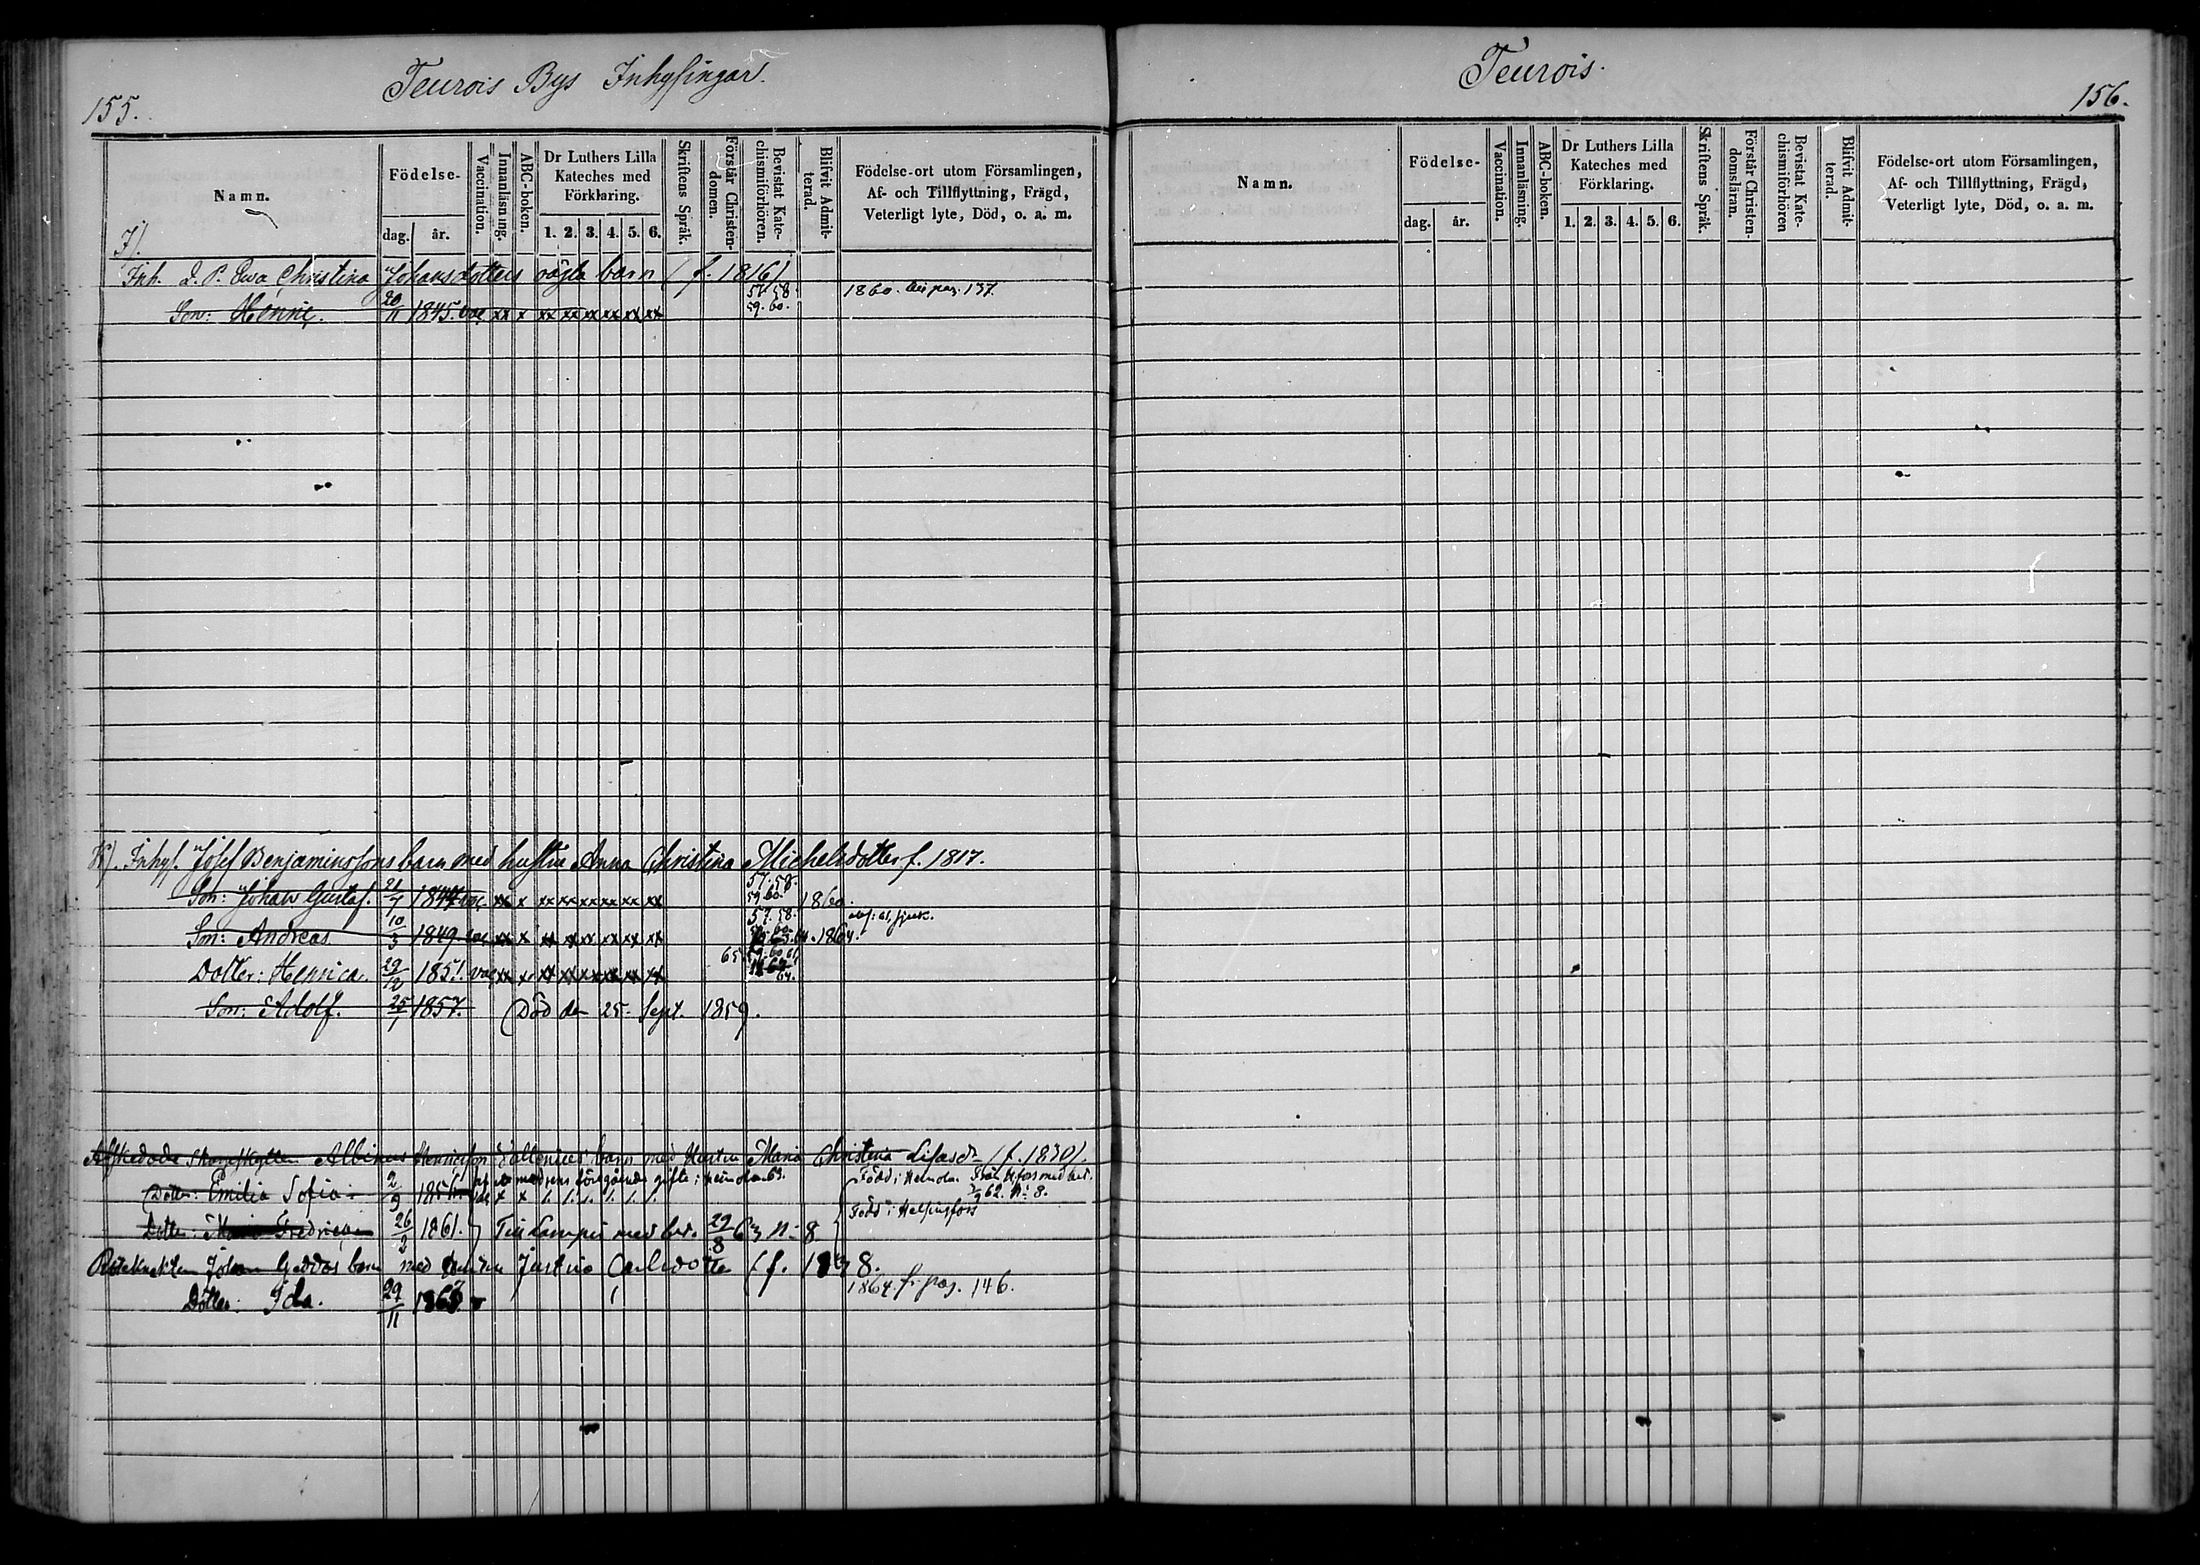 155.
Teurois Bys Inhysingar.
Namn.
Födelse-
dag.
år.
Vaccination.
Innanläsning.
ABC-boken.
Dr Luthers Lilla
Kateches med
Förklaring.
1. 2. 3. 4. 5. 6.
Skriftens Språk.
Förstår Christen-
domen.
Bevistat Kate-
chismiförhören.
Blifvit Admit-
terad.
Födelse-ort utom Församlingen,
Af- och Tillflyttning, Frägd,
Veterligt lyte, Död, o. a. m.
Inh. Ewa Christina Johansdotters oägta barn (f. 1816)
57. 58. 1860.
Son: Henric. 20/11 1845. vac xx x xx xx xx xx xx xx 59. 60.
Inhys. Josef Benjaminssons barn med hustru Anna Christina Michelsdotter f. 1817.
57. 58.
Son: Johan Gustaf. 21/7 1847 vac xx x xx xx xx xx xx xx 59. 60. 1860.
57. 58.
Son: Andreas 10/3 1849. vac xx x xx xx xx xx xx xx 1864.
Dotter: Henrica. 29/12 1851. vac xx x xx xx xx xx xx xx 65
Son: Adolf. 25/1 1857. (Död den 25. Sept. 1859.
Afskedade Albinus Henricsson barn med Hustru Maria Christina (f. 1830).
Dotter: Emilia Sofia 2/9 1856 Född i Heinola.
Född i Helsingfors
Dotter: Fredrica 26/2 1861. med bet. 29/8 63 n: 8
Johan Geddas barn med Justina Carlsdotter (f. 1838.
Dotter: Ida. 29/11 1863. 1864 fr. pag. 146.
Teurois.
156.
Namn.
Födelse-
dag.
år.
Vaccination.
Innanläsning.
ABC-boken.
Dr Luthers Lilla
Kateches med
Förklaring.
1. 2. 3. 4. 5. 6.
Skriftens Språk.
Förstår Christen-
domsläran.
Bevistat Kate-
chismiförhören
Blifvit Admit-
terad.
Födelse-ort utom Församlingen,
Af- och Tillflyttning, Frägd,
Veterligt lyte, Död, o. a. m.